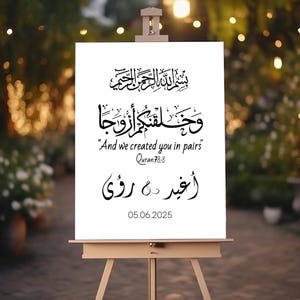 بسم الله الرحمن الرحيم
وخلقنكم أزوجا
"And we created you in pairs"
Quran 78:8
أغيد & رؤى
05.06.2025